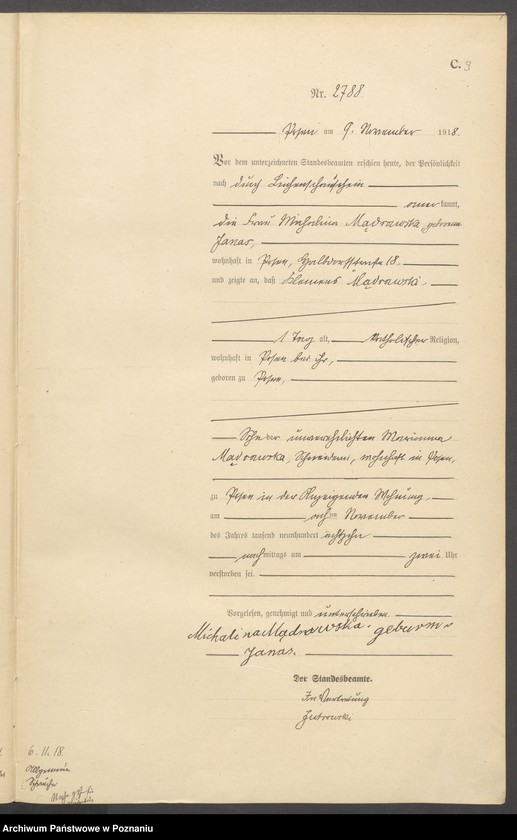 C. 3
Nr. 2788
Posen am 9. November 1918.
Vor dem unterzeichneten Standesbeamten erschien heute, der Persönlichkeit
nach durch Leichenschauschein
anerkannt,
die Frau Michalina Mądrawska, geborene
Janas,
wohnhaft in Posen, Halbdorfstraße 18.
und zeigte an, daß Klemens Mądrawski,
1 Tag alt, katholischer Religion,
wohnhaft in Posen bei ihr,
geboren zu Posen,
Sohn der unverehelichten Marianna
Mądrawska, Schneiderin, wohnhaft in Posen,
zu Posen in der Anzeigenden Wohnung,
am achten November
des Jahres tausend neunhundert achtzehn
nachmittags um zwei Uhr
verstorben sei.
Vorgelesen, genehmigt und unterschrieben.
Michalina Mądrawska. geborene
Janas.
Der Standesbeamte.
In Vertretung
6.11.18.
Archiwum Państwowe w Poznaniu